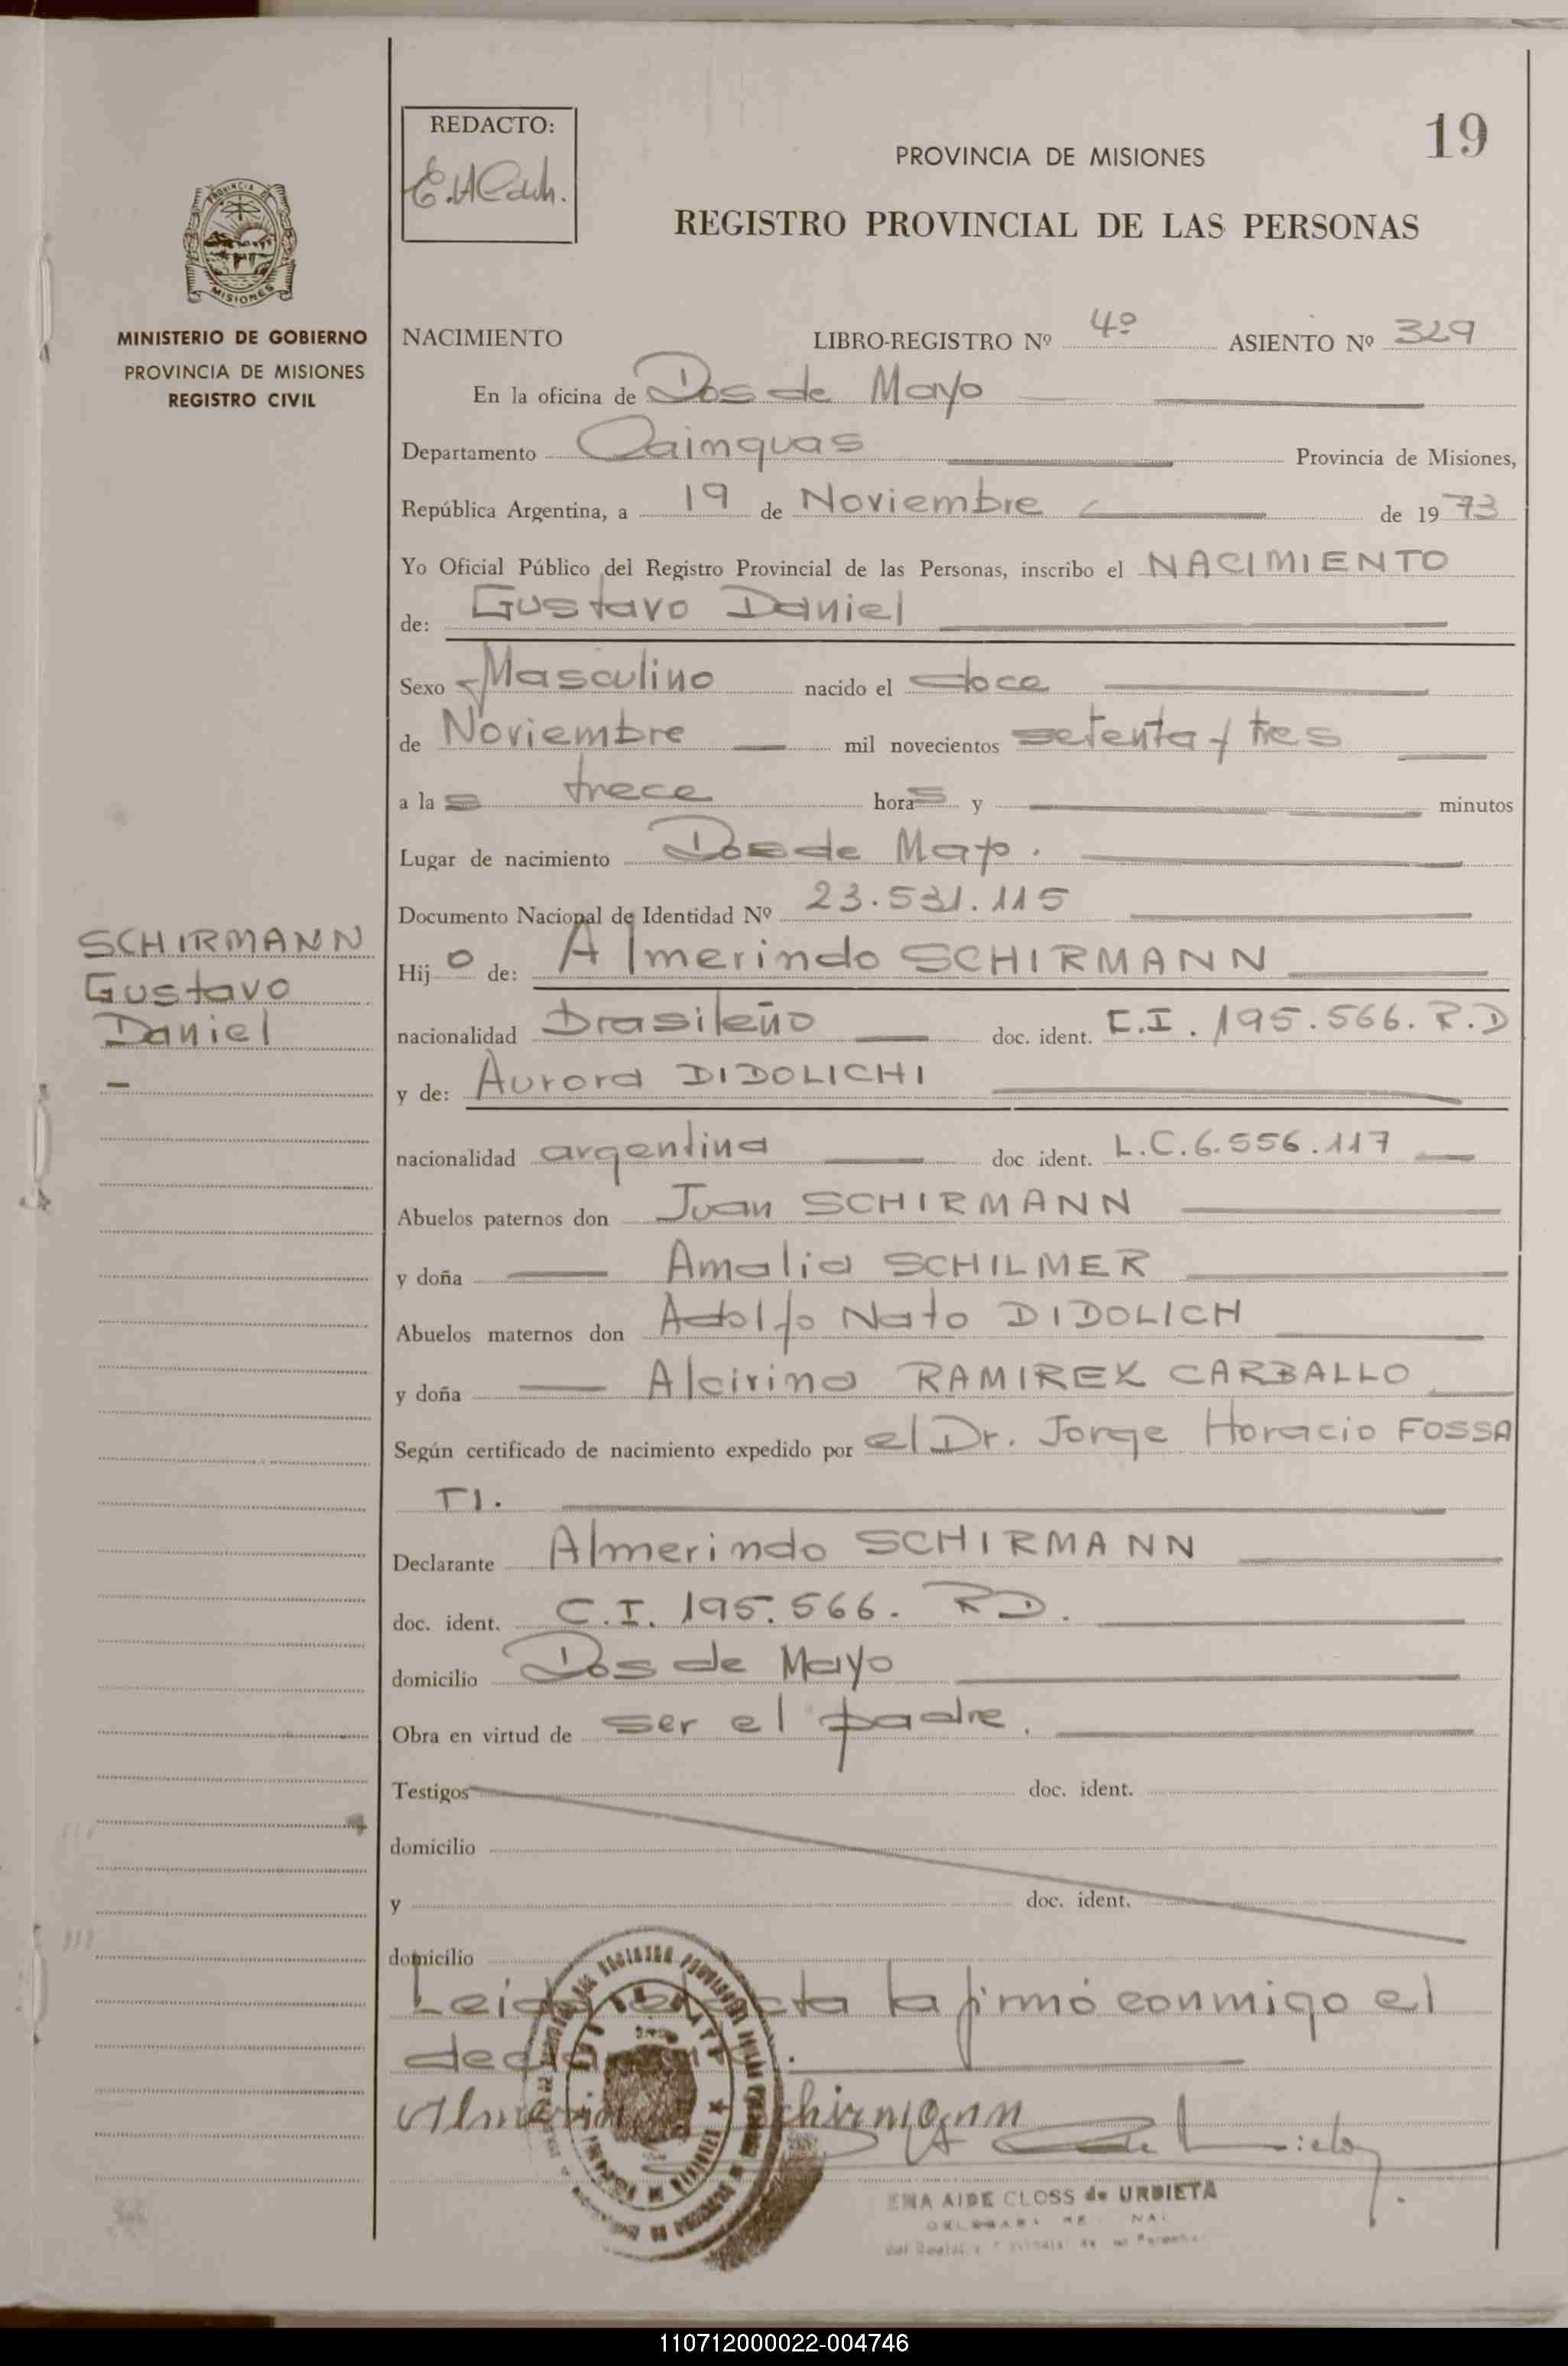 REDACTO:
19
PROVINCIA DE MISIONES
REGISTRO PROVINCIAL DE LAS PERSONAS
PROVINCIA DE
MISIONES
MINISTERIO DE GOBIERNO
PROVINCIA DE MISIONES
REGISTRO CIVIL
NACIMIENTO LIBRO-REGISTRO Nº 4º ASIENTO Nº 329
En la oficina de Dos de Mayo
Departamento Cainguas Provincia de Misiones,
República Argentina, a 19 de Noviembre de 1973
Yo Oficial Público del Registro Provincial de las Personas, inscribo el NACIMIENTO
de: Gustavo Daniel
Sexo Masculino nacido el doce
de Noviembre mil novecientos setenta y tres
a las trece horas y minutos
Lugar de nacimiento Dos de Mayo.
Documento Nacional de Identidad Nº 23.531.115
SCHIRMANN
Gustavo
Daniel
Hijo de: Almerindo SCHIRMANN
nacionalidad Brasileño doc. ident. C.I. 195.566. R.D
y de: Aurora DIDOLICHI
nacionalidad argentina doc ident. L.C. 6.556.117
Abuelos paternos don Juan SCHIRMANN
y doña Amalia SCHILMER
Abuelos maternos don Adolfo Nato DIDOLICH
y doña Alcirina RAMIREZ CARBALLO
Según certificado de nacimiento expedido por el Dr. Jorge Horacio FOSSA
TI.
Declarante Almerindo SCHIRMANN
doc. ident. C.I. 195.566. RD.
domicilio Dos de Mayo
Obra en virtud de ser el padre.
Testigos doc. ident.
domicilio
y doc. ident.
domicilio
Leida el acta la firmó conmigo el
declarante.
Almerindo Schirmann
AIDE CLOSS de URBIETA
110712000022-004746